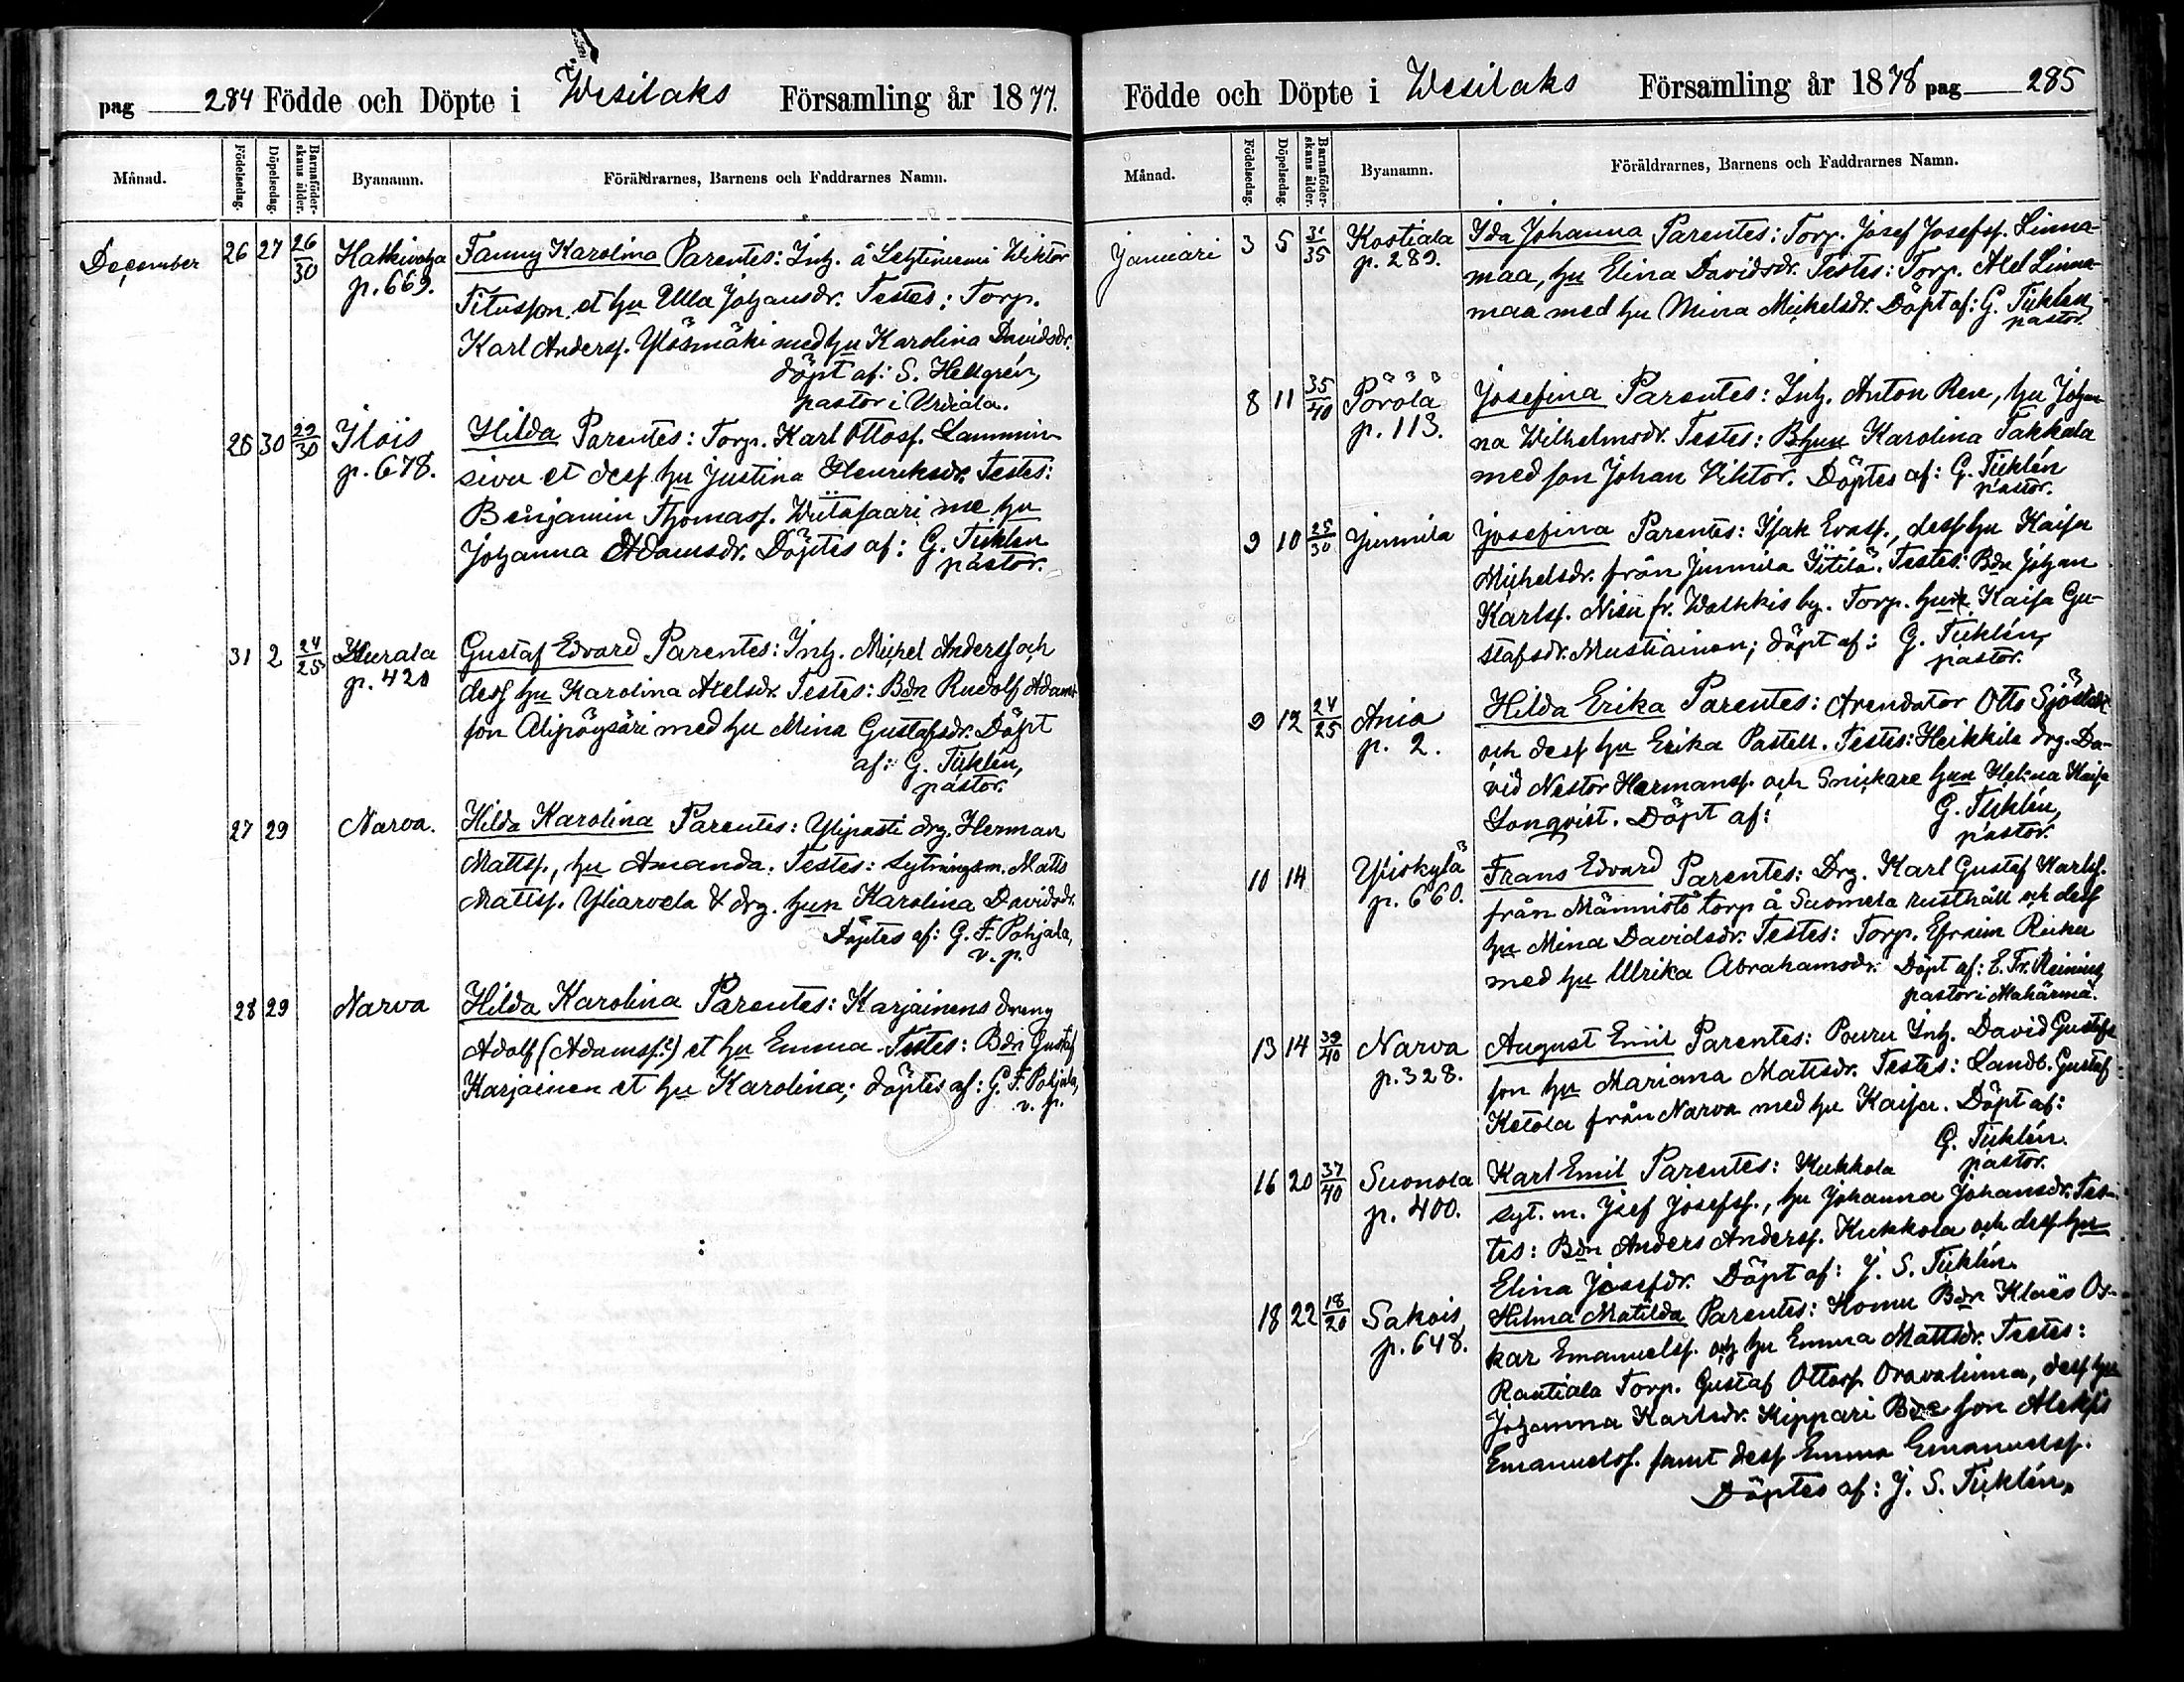 pag 284 Födde och Döpte i Wesilaks Församling år 1877.
Månad. Födelsedag. Döpelsedag. Barnaföderskans ålder. Byanamn. Föräldrarnes, Barnens och Faddrarnes Namn.
December 26 27 26/30 Hakkivaha Fanny Karolina Parentes: Inh. å Lehtiniemi Wiktor
p. 669. Titusson et hu Ulla Johansdr. Testes: Torp.
Karl Anders. Ylösmäki med hu Karolina Davidsdr.
döpt af: S. Hellgrén,
pastor i Urdiala.
26 30 29/30 Ilois Hilda Parentes: Torp. Karl Ottoss. Lammin
p. 678. sivu et dess hu Justina Henriksdr. Testes:
Benjamin Thomass. Wiitasaari me hu
Johanna Adamsdr. Döptes af: G. Ticklén
pastor.
31 2 24/25 Hurala Gustaf Edvard Parentes: Inh. Michel Anderss och
p. 420 dess hu Karolina Axelsdr. Testes: Bdn Rudolf Adams
son Alipöysäri med hu Mina Gustafsdr. Döpt
af: G. Ticklén,
pastor.
27 29 Narva. Hilda Karolina Parentes: Ylipasti drg. Herman
Mattss., hu Amanda. Testes: Sytningsm. Matts
Mattss. Yliarvela & drg. hun Karolina Davidsdr.
Döptes af: G. F. Pohjala,
v. p.
28 29 Narva Hilda Karolina Parentes: Karjainens dreng
Adolf (Adamss?) et hu Emma Testes: Bdn Gustaf
Karjainen et hu Karolina; döptes af: G. F. Pohjala,
v. p.
Födde och Döpte i Wesilaks Församling år 1878 pag 285
Månad. Födelsedag. Döpelsedag. Barnaföderskans ålder. Byanamn. Föräldrarnes, Barnens och Faddrarnes Namn.
Januari 3 5 31/35 Kostiala Ida Johanna Parentes: Torp. Josef Josefss. Linna-
p. 289. maa, hu Elina Davidsdr. Testes: Torp. Axel Linna-
maa med hu Mina Michelsdr. Döpt af: G. Ticklén
pastor.
8 11 35/40 Pörölä Josefina Parentes: Inh. Anton Ren, hu Johan
p. 113. na Wilhelmsdr. Testes: Bhun Karolina Takkala
med son Johan Viktor. Döptes af: G. Ticklén
pastor.
9 10 25/30 Junnila Josefina Parentes: Isak Evass., dess hu Kaisa
Michelsdr. från Junnila Iitilä. Testes: Bdn Johan
Karlss. Nisu fr. Walkkis by. Torp. hun Kaisa Gu-
stafsdr. Mustiainen; döpt af: G. Ticklén,
pastor.
9 12 24/25 Ania Hilda Erika Parentes: Arendator Otto Sjöstedt
p. 2. och dess hu Erika Pastell. Testes: Heikkilä drg. Da-
vid Nestor Hermanss. och Snickare hun Helena Kaisa
Lonqvist. Döpt af: G. Ticklén,
pastor.
10 14 Ylioskylä Frans Edvard Parentes: Drg. Karl Gustaf Karls.
p. 660. från Männistö torp å Suomela rusthåll och dess
hu Mina Davidsdr. Testes: Torp. Efraim Ruha
med hu Ulrika Abrahamsdr. Döpt af: E. Fr. Reinius,
pastor i Mahärmä.
13 14 39/40 Narva August Emil Parentes: Pouru Inh. David Gustafs
p. 328. son hu Mariana Mattsdr. Testes: Landb. Gustaf
Ketola från Narva med hu Kaisa. Döpt af:
G. Ticklén.
pastor.
16 20 37/40 Suonola Karl Emil Parentes: Kukkola
p. 400. syt. m. Jsef Josefss., hu Johanna Johansdr. Tes-
tes: Bdn Anders Anderss. Kukkola och dess hu
Elina Josefdr. Döpt af: J. S. Ticklén.
18 22 18/20 Sakois Hilma Matilda Parentes: Komu Bdn Klaës Os-
p. 648. kar Emanuelss. och hu Emma Mattsdr. Testes:
Rautiala Torp. Gustaf Ottoss Oravalinna, dess hu
Johanna Karlsdr. Kippari Bde son Aleksis
Emanuelss. samt dess Emma Emanuelss.
Döptes af: J. S. Ticklén.